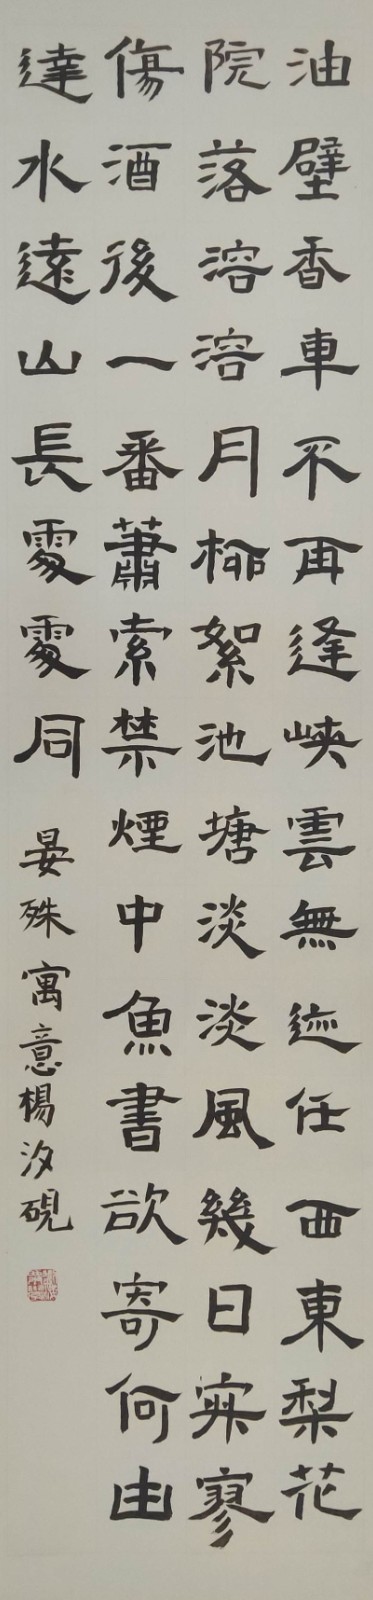 油壁香車不再逢峽雲無迹任西東梨花
院落溶溶月柳絮池塘淡淡風幾日寂寥
傷酒後一番蕭索禁煙中魚書欲寄何由
達水遠山長處處同
晏殊寓意楊汐硯